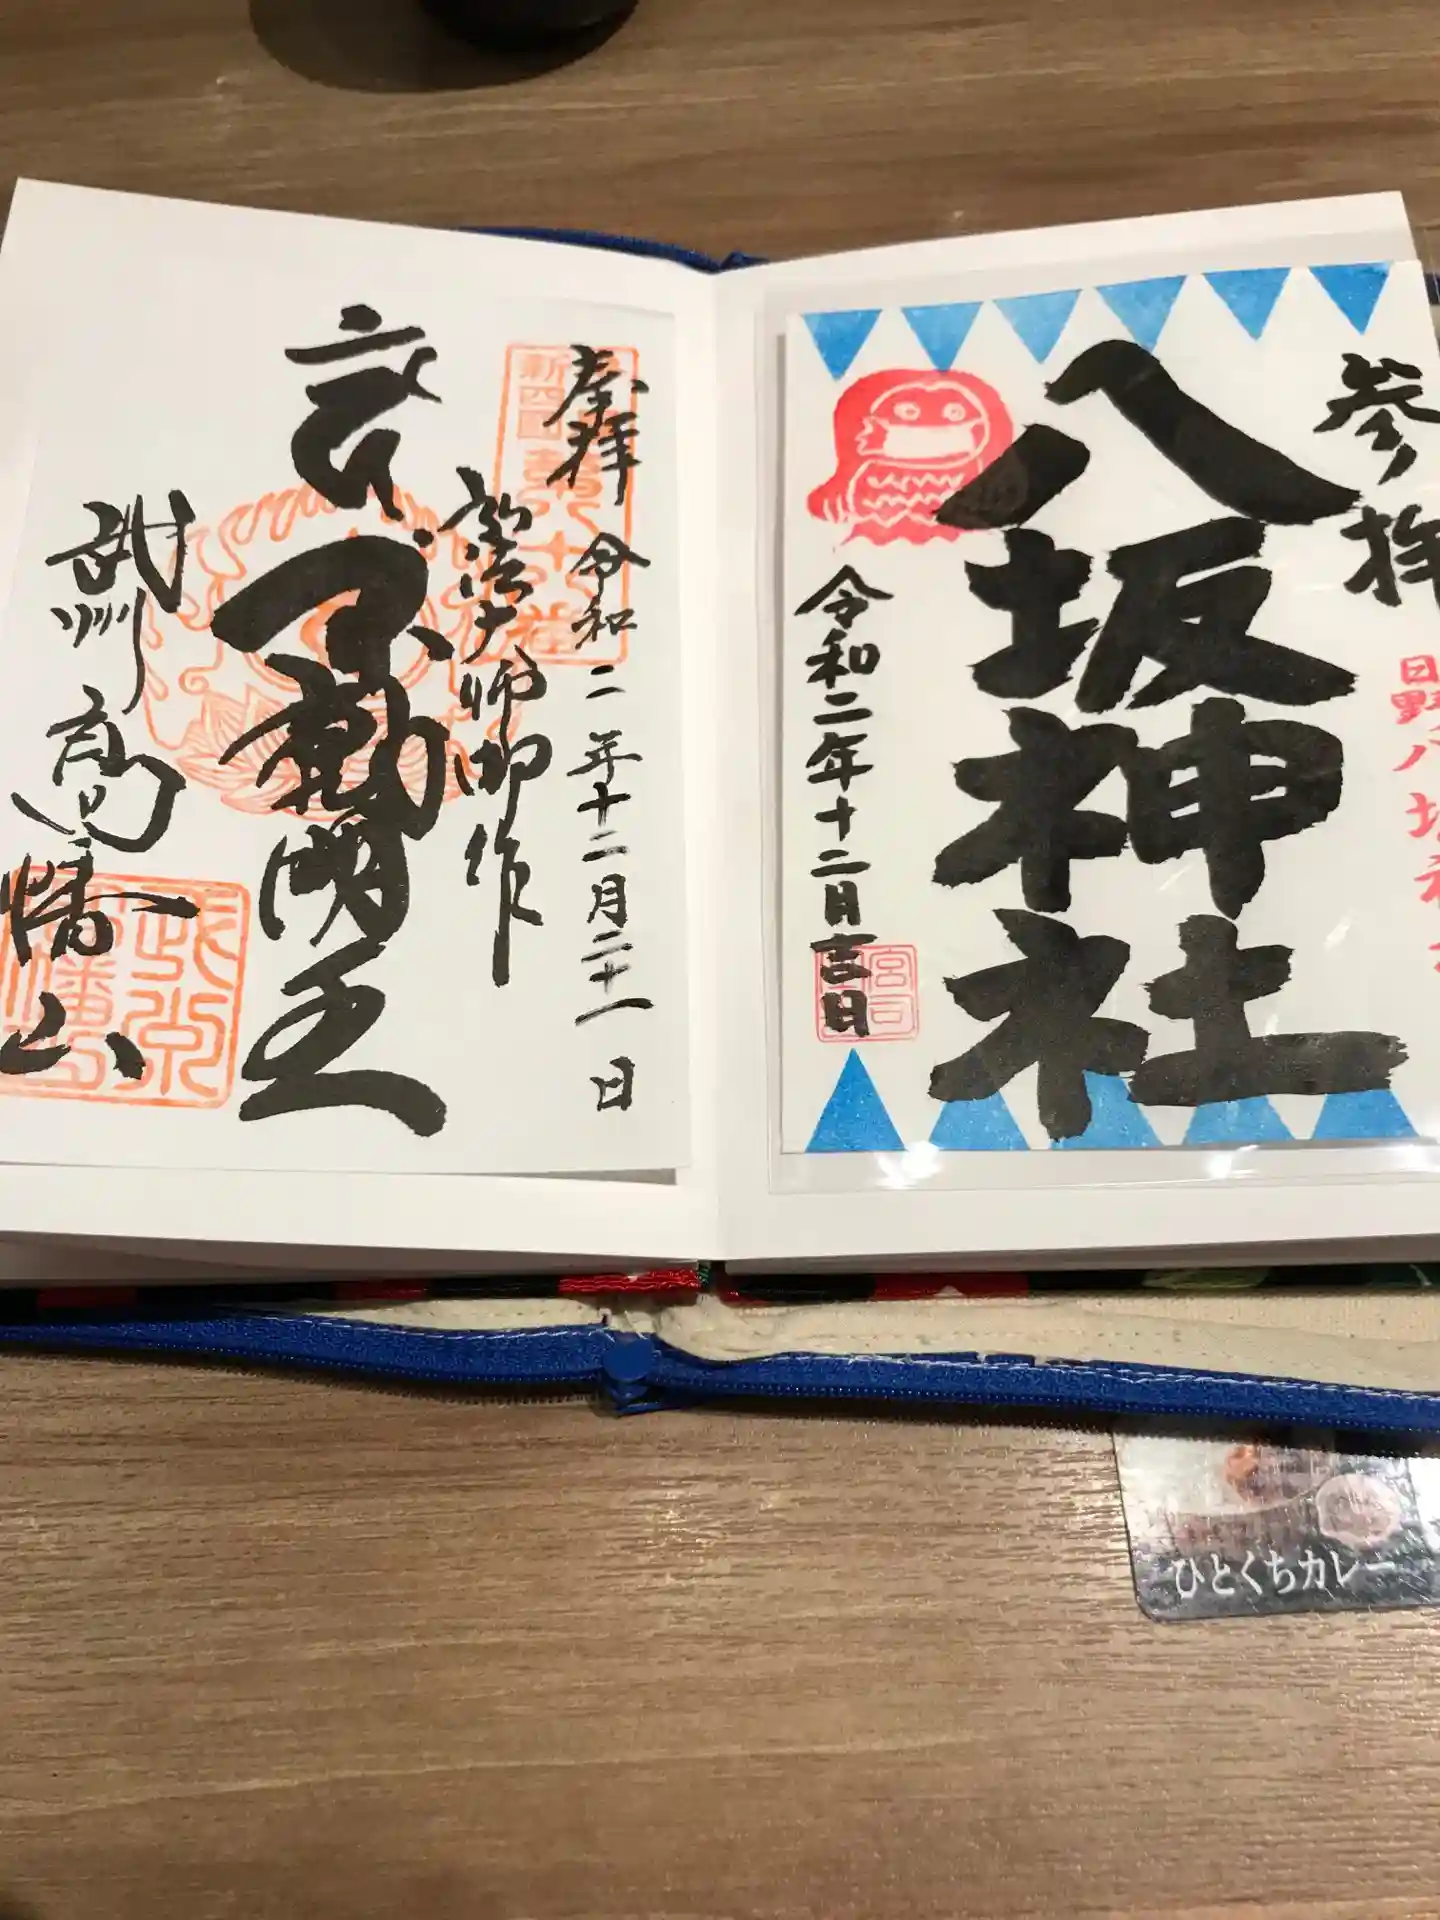 参拝
八坂神社
令和二年十二月吉日
宮司
日野八坂神
奉拝 令和二年十二月二十一日
弘法大師御作
不動明王
武州高幡山
ひとくちカレー